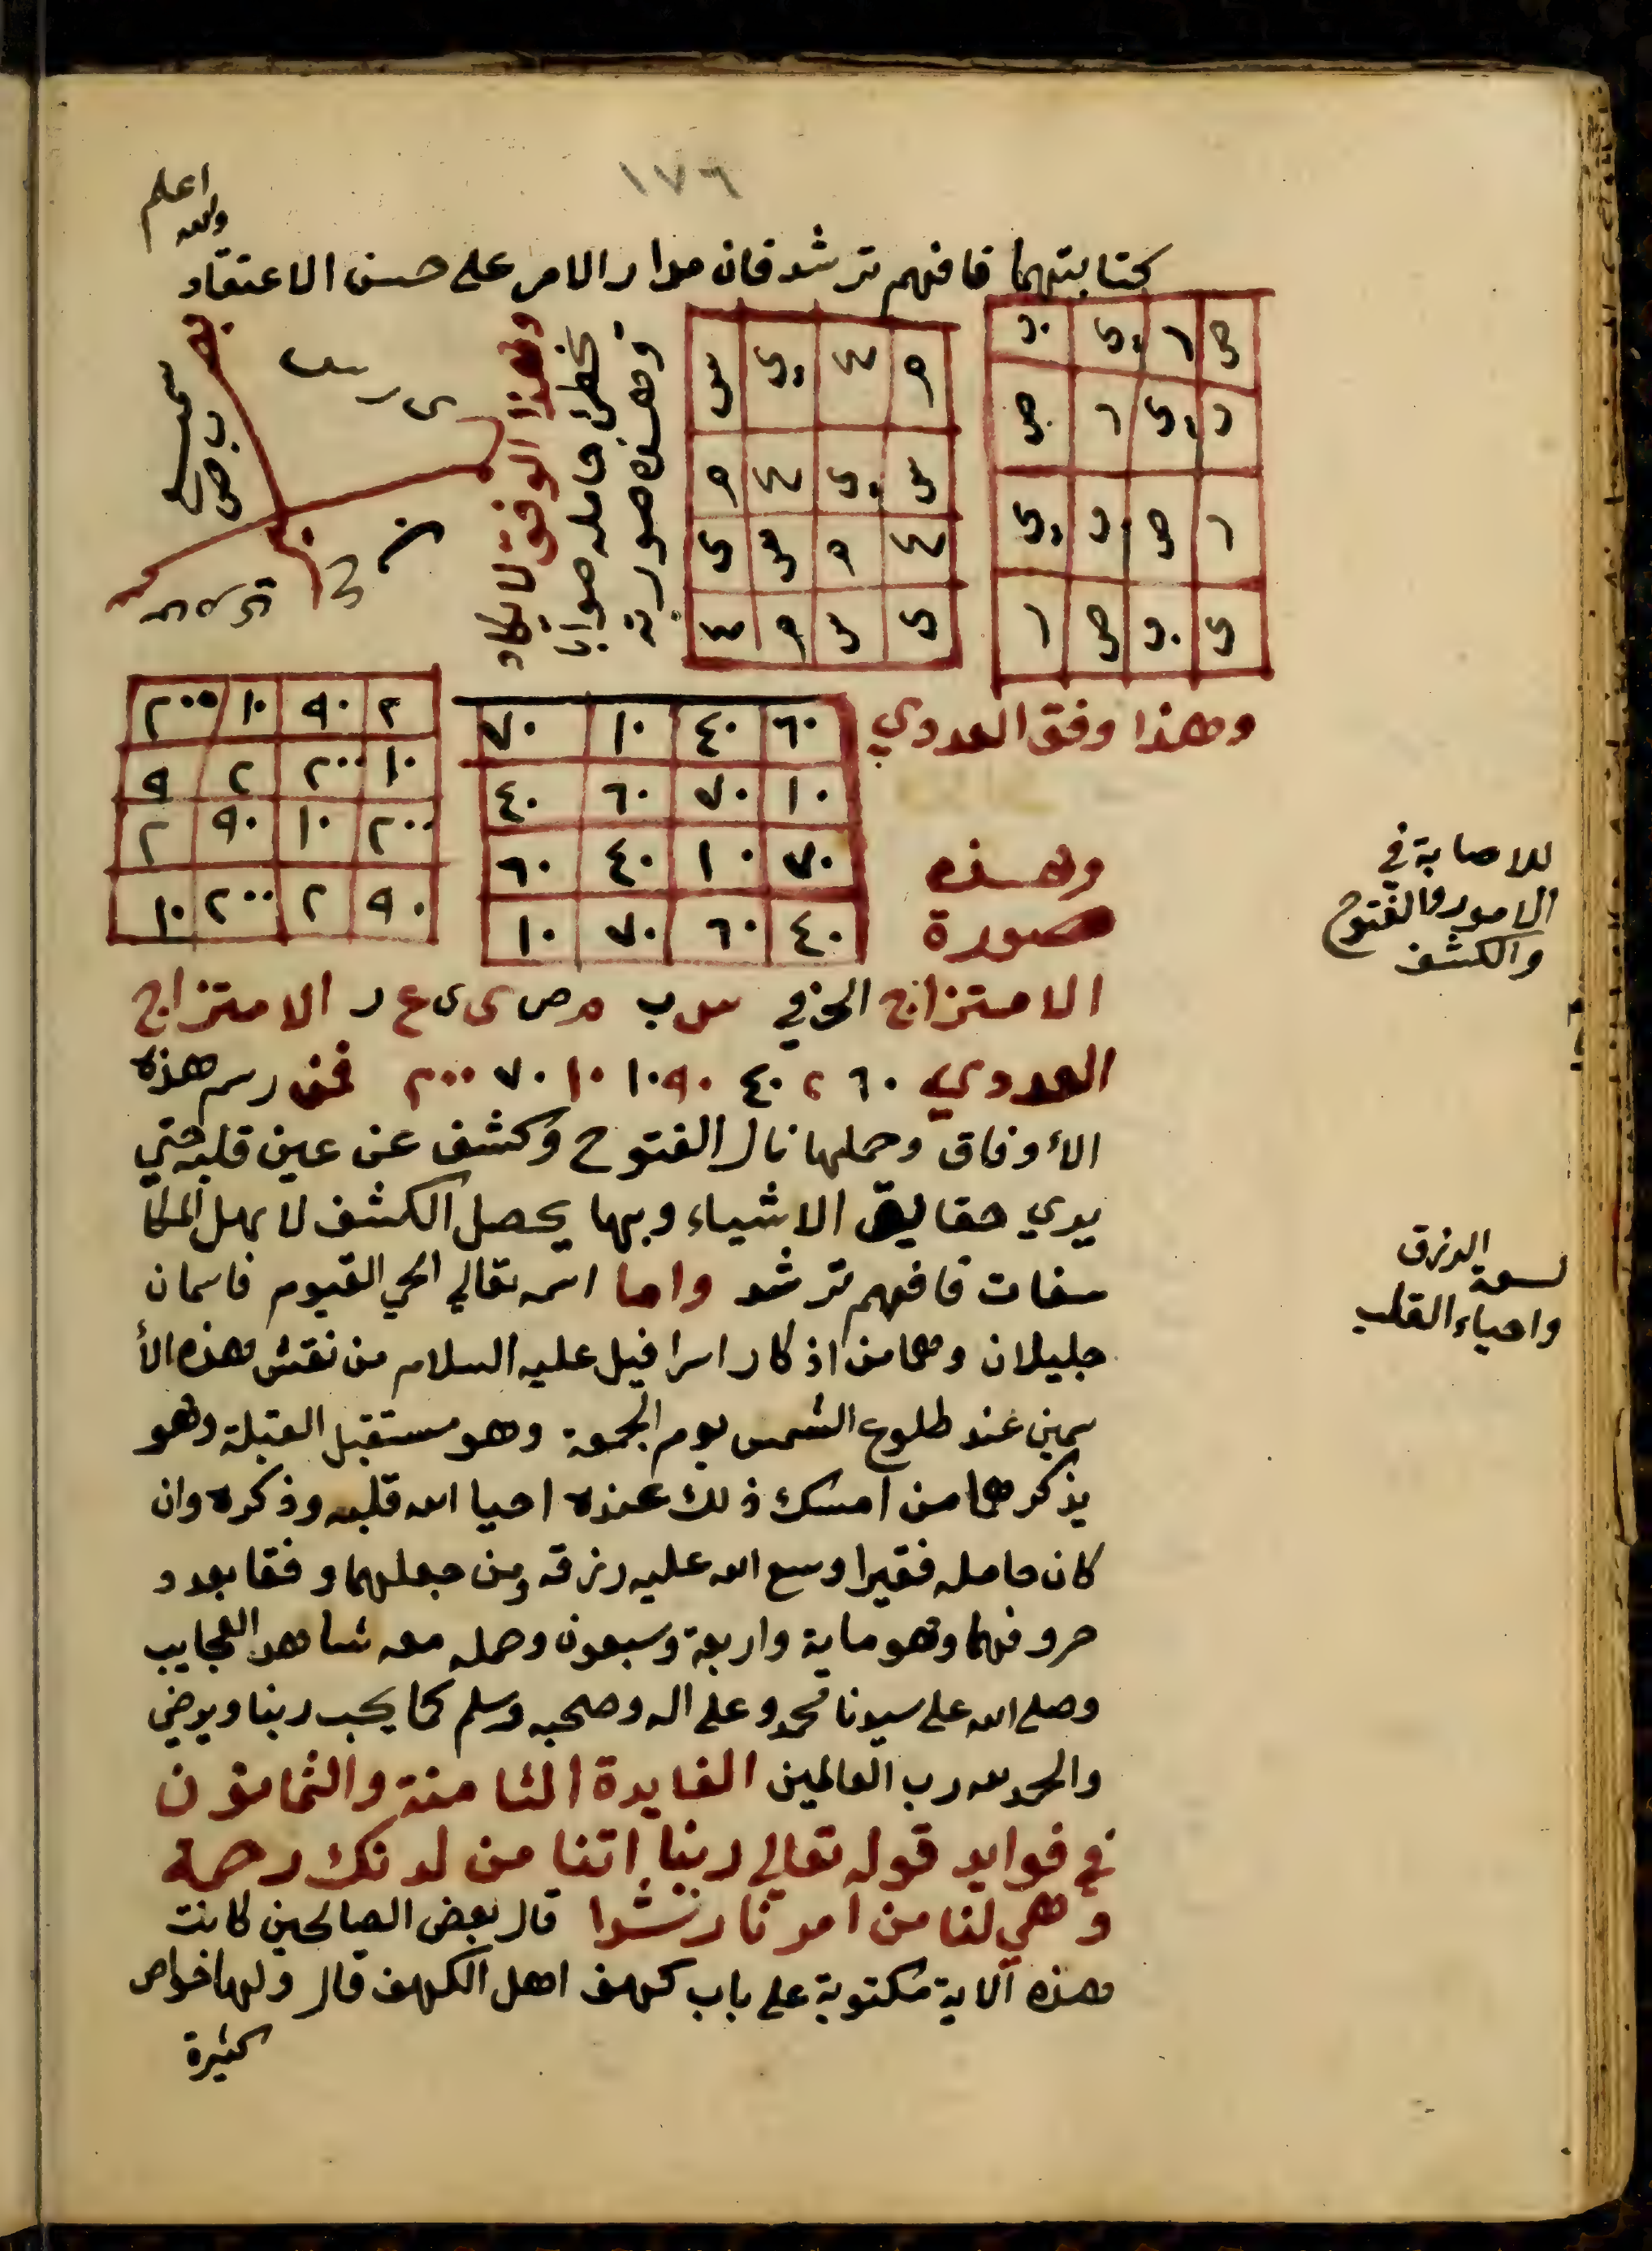 ١٧٦
والله اعلم
كتابتهما فافهم ترشد فان مدار الامر على حسن الاعتقاد
ص ر ى ب
ب ى ر ص
ر ص ب ى
ى ب ص ر
م ع ى س
س ى ع م
ع م س ى
ى س م ع
وهذه صورته
يخطئ حامله صوابا
وهذا الوفق لا يكاد
وهذا وفق العددي
٦٠ ٤٠ ١٠ ٧٠
١٠ ٧٠ ٦٠ ٤٠
٧٠ ١٠ ٤٠ ٦٠
٤٠ ٦٠ ٧٠ ١٠
٢ ٩٠ ١٠ ٢٠٠
١٠ ٢٠٠ ٢ ٩
٢٠٠ ١٠ ٩٠ ٢
٩٠ ٢ ٢٠٠ ١٠
وهذه
صورة
الامتزاج الحرفي س ب م ص ى ى ع ر الامتزاج
العددي ٦٠ ٢ ٤٠ ٩٠ ١٠ ١٠ ٧٠ ٢٠٠ فمن رسم هذه
الأوفاق وحملها نال الفتوح وكشف عن عين قلبه حتي
يري حقايق الاشياء وبها يحصل الكشف لاهل المكا
سفات فافهم ترشد واما اسمه تعالي الحي القيوم فاسمان
جليلان وهما من اذكار اسرافيل عليه السلام من نقش هذه الأ
سمين عند طلوع الشمس يوم الجمعة وهو مستقبل القبلة وهو
يذكرهما من امسك ذلك عنده احيا الله قلبه وذكره وان
كان حامله فقيرا وسع الله عليه رزقه ومن جعلهما وفقا بعدد
حروفهما وهو ماية واربعة وسبعون وحمله معه شاهد العجايب
وصلى الله على سيدنا محمد وعلى اله وصحبه وسلم كما يحب ربنا ويرضي
والحمد لله رب العالمين الفايدة الثامنة والثمانون
في فوايد قوله تعالي ربنا اتنا من لدنك رحمة
وهي لنا من امرنا رشدا قال بعض الصالحين كانت
هذه الاية مكتوبة على باب كهف اهل الكهف قال ولها خواص
كثيرة
للاصابة في
الامور والفتوح
والكشف
لسعة الرزق
واحياء القلب